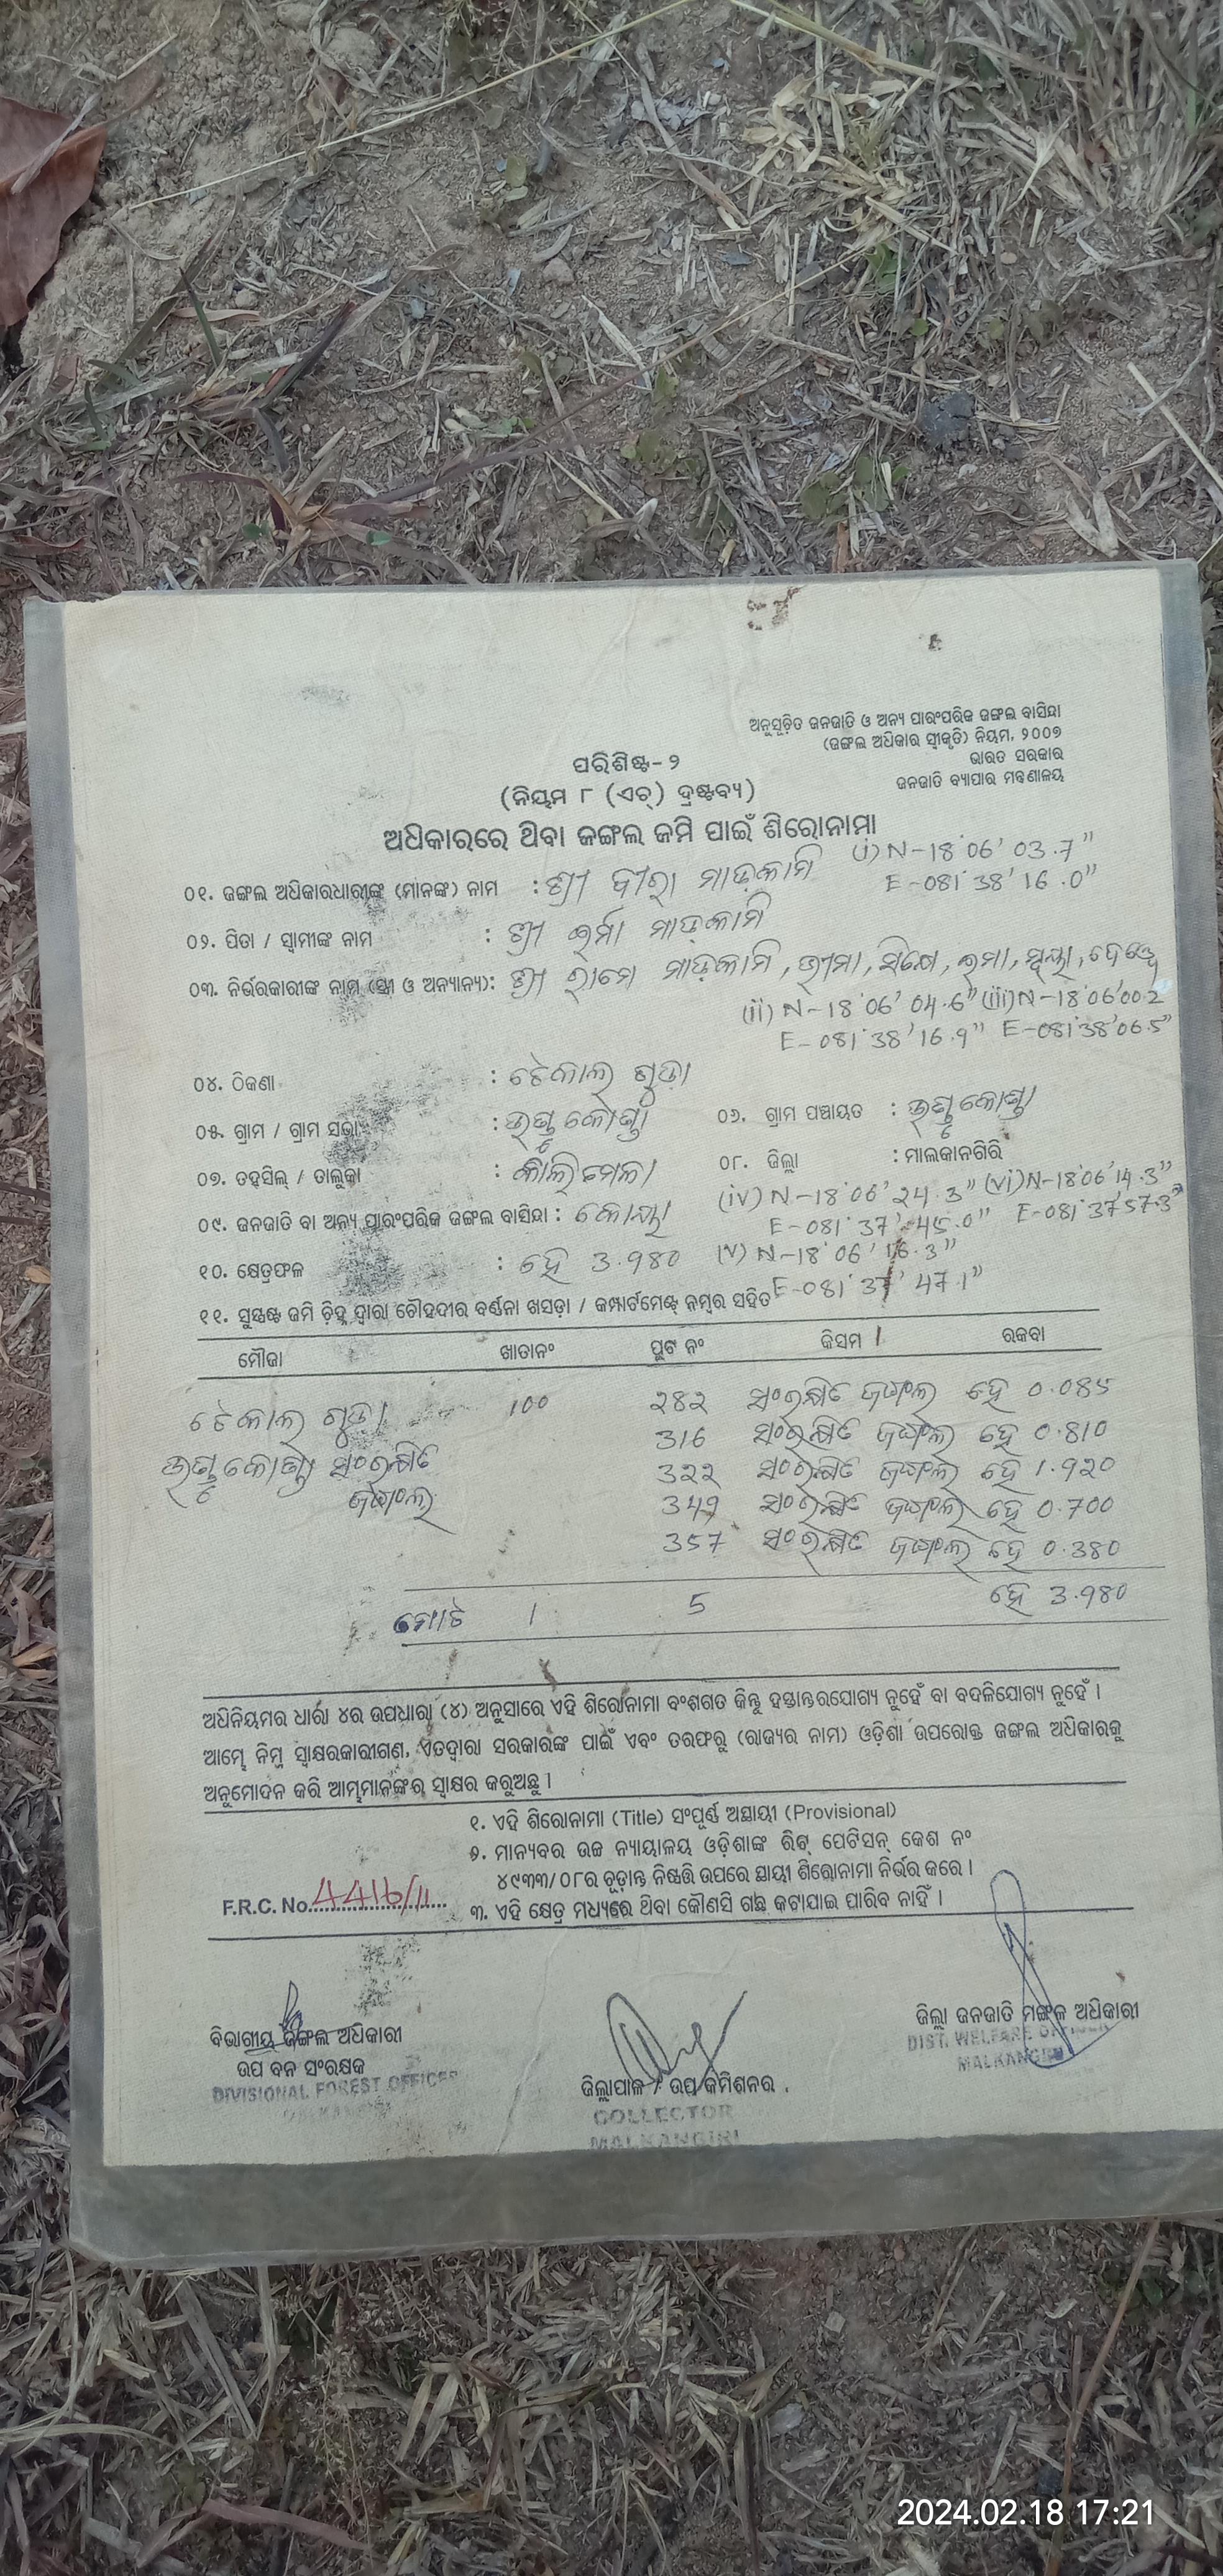 ଅନୁସୂଚିତ ଜନଜାତି ଓ ଅନ୍ୟ ପାରଂପରିକ ଜଙ୍ଗଲ ବାସିନ୍ଦା
(ଜଙ୍ଗଲ ଅଧିକାର ସ୍ୱୀକୃତି) ନିୟମ, ୨୦୦୭
ଭାରତ ସରକାର
ଜନଜାତି ବ୍ୟାପାର ମନ୍ତ୍ରଣାଳୟ
ପରିଶିଷ୍ଟ-୨
(ନିୟମ ୮ (ଏଚ୍) ଦ୍ରଷ୍ଟବ୍ୟ)
ଅଧିକାରରେ ଥିବା ଜଙ୍ଗଲ ଜମି ପାଇଁ ଶିରୋନାମା
(i) N-18°06' 03.7"
E-081°38'16.0"
୦୧. ଜଙ୍ଗଲ ଅଧିକାରଧାରୀଙ୍କ (ମାନଙ୍କ) ନାମ : ଶ୍ରୀ ବୀରା ମାଡ଼କାମି
୦୨. ପିତା / ସ୍ୱାମୀଙ୍କ ନାମ : ଶ୍ରୀ ଇର୍ମା ମାଡ଼କାମି
୦୩. ନିର୍ଭରକାରୀଙ୍କ ନାମ (ସ୍ତ୍ରୀ ଓ ଅନ୍ୟାନ୍ୟ): ଶ୍ରୀ ରାମେ ମାଡ଼କାମି, ଭୀମା,
(ii) N-18°06' 04.6" (iii) N-18°06'00.2
E-081°38'16.9" E-081°38'06.5"
୦୪. ଠିକଣା : ଟେକାଲ ଗୁଡ଼ା
୦୫. ଗ୍ରାମ / ଗ୍ରାମ ସଭା : ୦୬. ଗ୍ରାମ ପଞ୍ଚାୟତ :
୦୭. ତହସିଲ୍ / ତାଲୁକା : କାଲିମେଳା ୦୮. ଜିଲ୍ଲା : ମାଲକାନଗିରି
(iv) N-18°06' 24.3" (vi) N-18°06'14.3"
୦୯. ଜନଜାତି ବା ଅନ୍ୟ ପାରଂପରିକ ଜଙ୍ଗଲ ବାସିନ୍ଦା : କୋୟା E-081°37'45.0" E-081°37'57.3"
୧୦. କ୍ଷେତ୍ରଫଳ : ହେ 3.980 (v) N-18°06'16.3"
E-081°37'47.1"
୧୧. ସୁସ୍ପଷ୍ଟ ଜମି ଚିହ୍ନ ଦ୍ୱାରା ଚୌହଦୀର ବର୍ଣ୍ଣନା ଖସଡ଼ା / କମ୍ପାର୍ଟମେଣ୍ଟ୍ ନମ୍ବର ସହିତ
ମୌଜା ଖାତାନଂ ପ୍ଲଟ ନଂ କିସମ ରକବା
ଟେକାଲ ଗୁଡ଼ା 100 282 ସଂରକ୍ଷିତ ଜଙ୍ଗଲ ହେ 0.085
316 ସଂରକ୍ଷିତ ଜଙ୍ଗଲ ହେ 0.810
ସଂରକ୍ଷିତ 322 ସଂରକ୍ଷିତ ଜଙ୍ଗଲ ହେ 1.920
ଜଙ୍ଗଲ 349 ସଂରକ୍ଷିତ ଜଙ୍ଗଲ ହେ 0.700
357 ସଂରକ୍ଷିତ ଜଙ୍ଗଲ ହେ 0.380
ମୋଟ 1 5 ହେ 3.980
ଅଧିନିୟମର ଧାରା ୪ର ଉପଧାରା (୪) ଅନୁସାରେ ଏହି ଶିରୋନାମା ବଂଶଗତ କିନ୍ତୁ ହସ୍ତାନ୍ତରଯୋଗ୍ୟ ନୁହେଁ ବା ବଦଳିଯୋଗ୍ୟ ନୁହେଁ ।
ଆମ୍ଭେ ନିମ୍ନ ସ୍ୱାକ୍ଷରକାରୀଗଣ, ଏତଦ୍ୱାରା ସରକାରଙ୍କ ପାଇଁ ଏବଂ ତରଫରୁ (ରାଜ୍ୟର ନାମ) ଓଡ଼ିଶା ଉପରୋକ୍ତ ଜଙ୍ଗଲ ଅଧିକାରକୁ
ଅନୁମୋଦନ କରି ଆମ୍ଭମାନଙ୍କର ସ୍ୱାକ୍ଷର କରୁଅଛୁ ।
୧. ଏହି ଶିରୋନାମା (Title) ସଂପୂର୍ଣ୍ଣ ଅସ୍ଥାୟୀ (Provisional)
୨. ମାନ୍ୟବର ଉଚ୍ଚ ନ୍ୟାୟାଳୟ ଓଡ଼ିଶାଙ୍କ ରିଟ୍ ପେଟିସନ୍ କେଶ ନଂ
୪୯୩୩/୦୮ର ଚୂଡ଼ାନ୍ତ ନିଷ୍ପତ୍ତି ଉପରେ ସ୍ଥାୟୀ ଶିରୋନାମା ନିର୍ଭର କରେ ।
F.R.C. No. 4416/11 ୩. ଏହି କ୍ଷେତ୍ର ମଧ୍ୟରେ ଥିବା କୌଣସି ଗଛ କଟାଯାଇ ପାରିବ ନାହିଁ ।
ବିଭାଗୀୟ ଜଙ୍ଗଲ ଅଧିକାରୀ
ଉପ ବନ ସଂରକ୍ଷକ
DIVISIONAL FOREST OFFICER
ଜିଲ୍ଲାପାଳ / ଉପ କମିଶନର
COLLECTOR
MALKANGIRI
ଜିଲ୍ଲା ଜନଜାତି ମଙ୍ଗଳ ଅଧିକାରୀ
DIST. WELFARE OFFICER
MALKANGIRI
2024.02.18 17:21